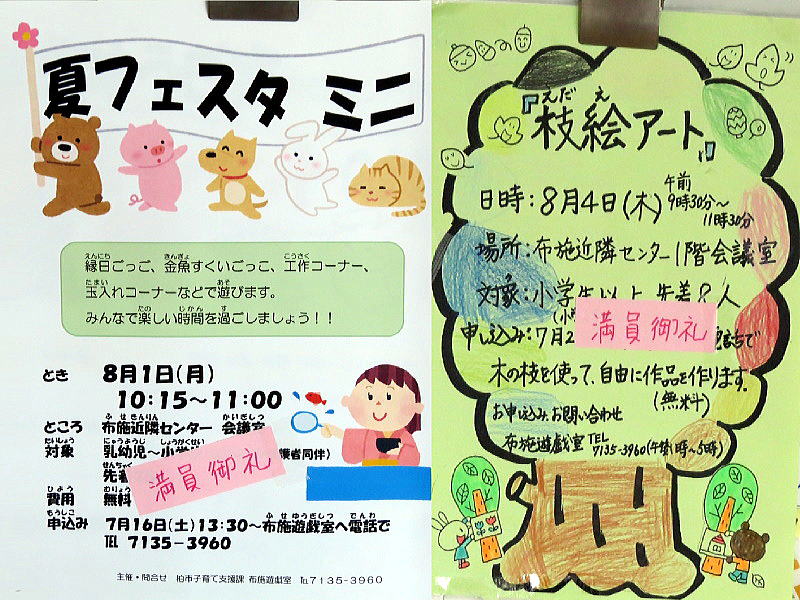 夏フェスタ ミニ
縁日ごっこ、金魚すくいごっこ、工作コーナー、
玉入れコーナーなどで遊びます。
みんなで楽しい時間を過ごしましょう！！
とき 8月1日(月)
10:15～11:00
ところ 布施近隣センター 会議室
対象 乳幼児～小学
者同伴)
先着
満員御礼
費用 無料
申込み 7月16日(土)13:30～布施遊戯室へ電話で
TEL 7135-3960
主催・問合せ 柏市子育て支援課 布施遊戯室 ℡7135-3960
『枝絵アート』
えだ え
日時:8月4日(木)午前9時30分～
11時30分
場所:布施近隣センター1階会議室
対象:小学生以上 先着8人
満員御礼
申し込み:7月2
まで
木の枝を使って、自由に作品を作ります。
(無料)
お申込み、お問い合わせ
布施遊戯室 TEL 7135-3960(午後1時～5時)